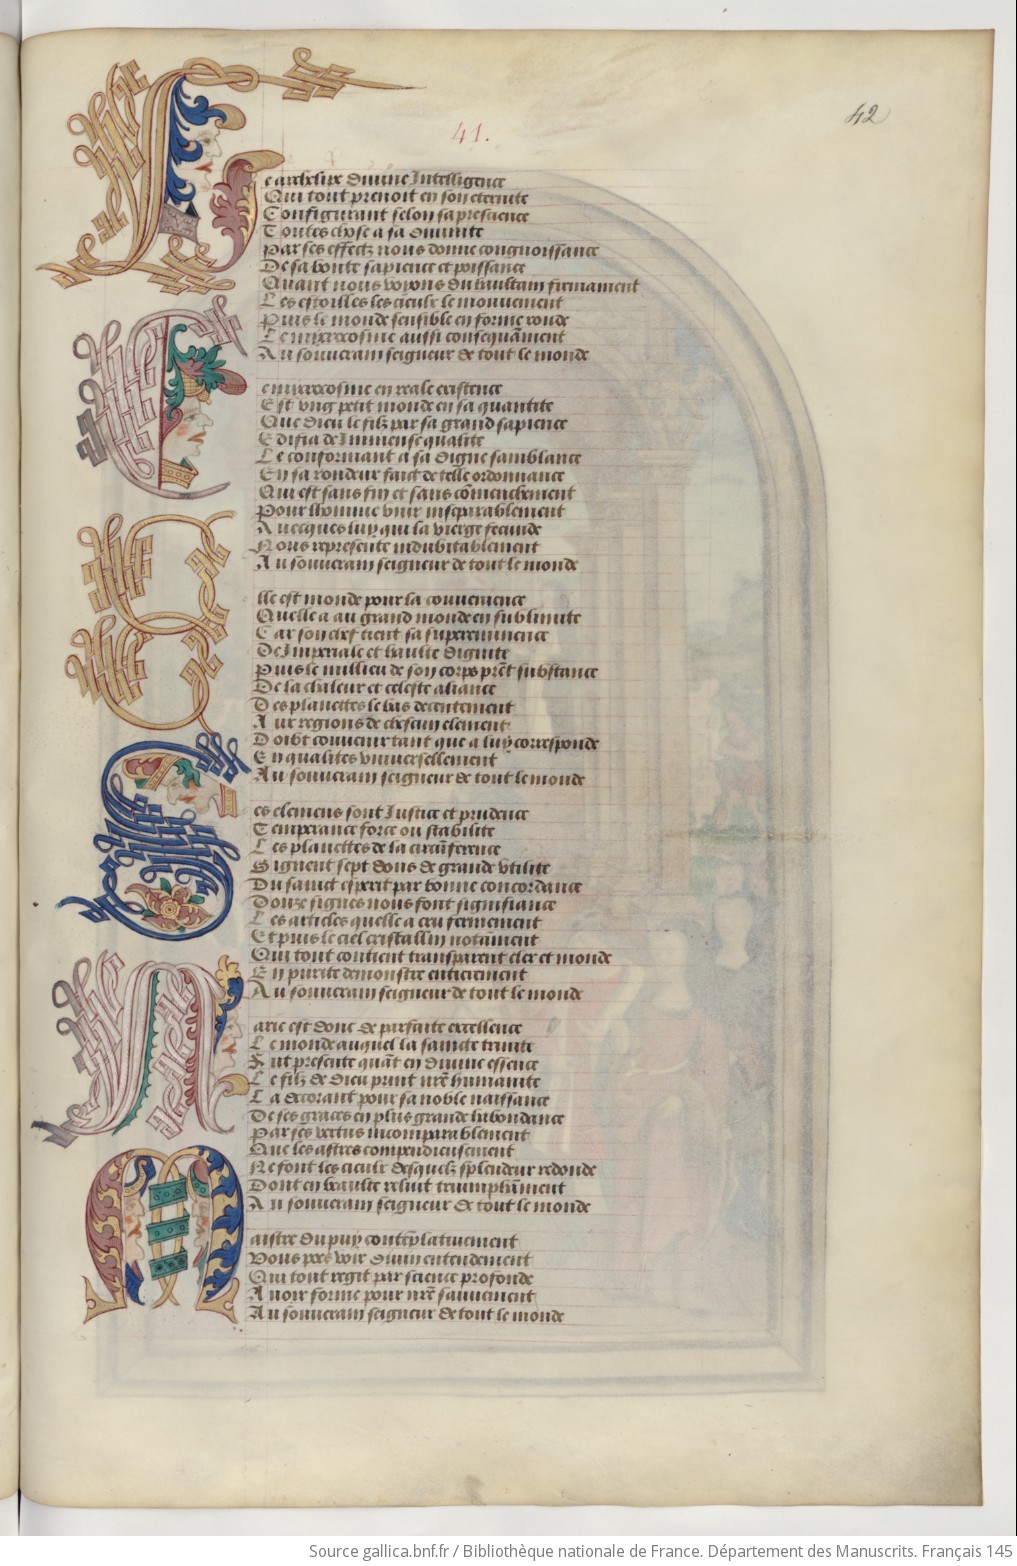 42
41.
Le archetipe diuine Intelligence
Qui tout preuoit en son eternite
Configurant selon sa prescience
Toutes chose a sa diuinite
Par ses effectz nous donne congnoissance
De sa bonte sapience et puissance
Quant nous voyons du haultain firmament
Les estoilles les cieulx le mouuement
Puis le monde sensible en forme ronde
Le mixrocosme aussi consequāment
Au souuerain seigneur de tout le monde
Le mixrocosme en reale existence
Est vng petit monde en sa quantite
Que dieu le filz par sa grand sapience
Edifia de Immense qualite
Le conformant a sa digne samblance
En sa rondeur faict de telle ordonnance
Qui est sans fin et sans cōmenchement
Pour lhomme vnir inseparablement
Auecques luy qui la vierge feconde
Nous represente indubitablement
Au souuerain seigneur de tout le monde
Elle est monde pour la conuenience
Quelle a au grand monde en sublimite
Car son chef tient sa supereminence
De Imperiale et haulte dignite
Puis le millieu de son corps prēt substance
De la chaleur et celeste aliance
Des planettes le bas decentement
Aux regions de chascun element
Doibt conuenir tant que a luy corresponde
En qualites vniuersellement
Au souuerain seigneur de tout le monde
Ses elemens sont Justice et prudence
Temperance force ou stabilite
Les planettes de la circūference
Signent sept dons de grande vtilite
Du sainct esperit par bonne concordance
Douze signes nous font signifiance
Les articles quelle a creu fermement
Et puis le ciel cristallin notāment
Qui tout contient transparent cler et monde
En purite demonstre entierement
Au souuerain seigneur de tout le monde
Marie est donc de parfaite excellence
Le monde auquel la saincte trinite
Fut presente quāt en diuine essence
Le filz de dieu print nrē humanite
La decorant pour sa noble naissance
De ses graces en plus grande habondance
Par ses vertus incomparablement
Que les astres compendieusement
Ne font les cieulx desquelz splendeur redonde
Dont en beaulte reluit triumphāment
Au souuerain seigneur de tout le monde
Maistre du puy contēplatiuement
Vous poes voir diuin entendement
Qui tout regit par science profonde
Auoir forme pour nrē sauuement
Au souuerain seigneur de tout le monde
Source gallica.bnf.fr / Bibliothèque nationale de France. Département des Manuscrits. Français 145